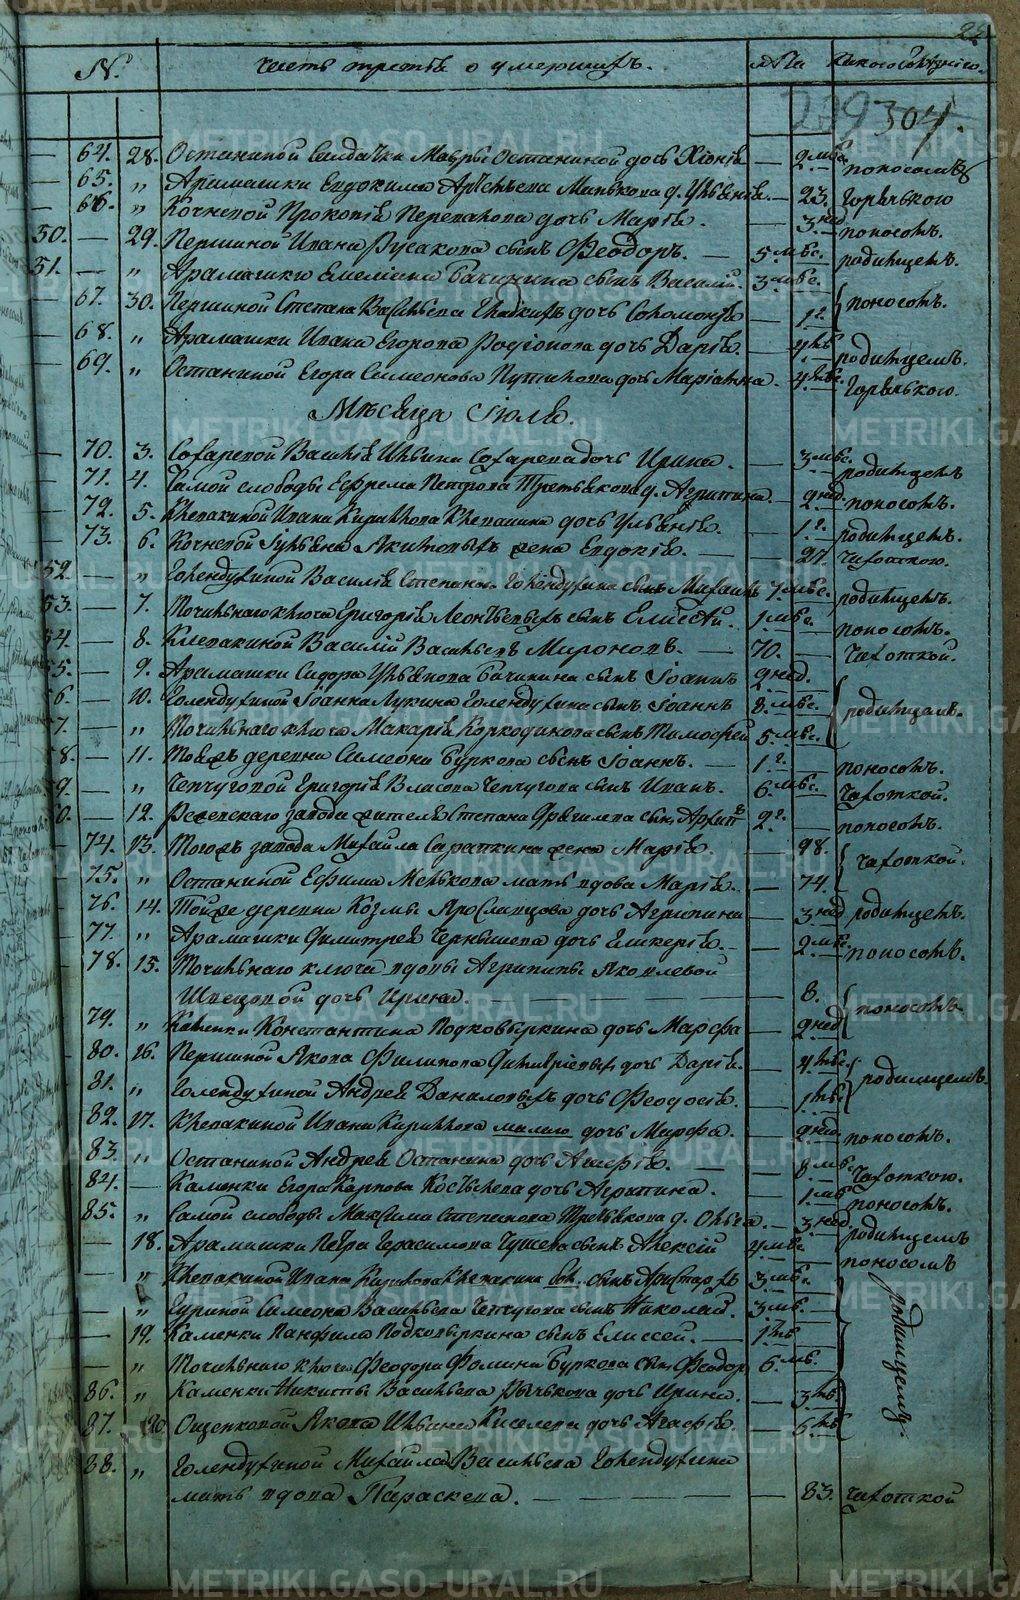 N. Часть третія о умершихъ. Лѣта Какою болѣзнію.
304.
64. 28. Останиной солдатки Мавры Останиной дочь Хіонія — 2 мѣс. — поносомъ
65. „ Арамашки Евдокима Арсеньева Минькова д. Ульянія. — 23. Горячкою
66. „ Кочневой Прокопія Перевалова дочь Марія. — 3. нед. — поносомъ.
50. — 29. Першиной Ивана Русакова сынъ Феодоръ. — 5. мѣс. — родимцемъ.
51. — „ Арамашки Емеліана Бачинина сынъ Василій. 3. мѣс.
67. 30. Першиной Степана Васильева дочь Соломонія — 1 г. поносомъ.
68. „ Арамашки Ивана Егорова Родіонова дочь Дарія. — родимцемъ.
69. „ Останиной Егора Симеонова Путилова дочь Маріамна. — 4. мѣс. Горячкою.
Мѣсяца Іюля.
70. 3. Сохаревой Василія Ильина Сохарева дочь Ирина. — 3. мѣс. родимцемъ
71. 4. Самой слободы Ефрема Петрова Третьякова д. Агрипина — 2 нед. — поносомъ.
72. 5. Клевакиной Ивана Кирилова Клевакина дочь Ульянія. — 1 г. родимцемъ.
73. 6. Кочневой Іуліана Акитовыхъ жена Евдокія. — 27. Чахоткою.
52. — „ Голендухиной Василія Степанова Голендухина сынъ Михаилъ 7. мѣс. родимцемъ.
53. — 7. Точильнаго ключа Григорія Леонтьевыхъ сынъ Елисей. 1. мѣс. — поносомъ.
54. — 8. Клевакиной Василій Васильевъ Мироновъ. — 70. — Чахоткой.
55. — 9. Арамашки Сидора Ульянова Бачинина сынъ Іоаннъ 2 нед.
56. — 10. Голендухиной Іоанна Лукина Голендухина сынъ Іоаннъ 8. мѣс. родимцемъ.
57. — „ Точильнаго ключа Макарія Коркодинова сынъ Тимофей 5. мѣс.
58. — 11. Тоежъ деревни Симеона Буркова сынъ Іоаннъ. — 1 г. — поносомъ.
59. — „ Чепчуговой Григорія Власова Чепчугова сынъ Иванъ. 6. мѣс. Чахоткой.
60. — 12. Режевскаго завода жителя Степана сынъ 2 г. — поносомъ.
74. 13. Тогожъ завода Михайла Сараткина жена Марія. — 98. чахоткой.
75. „ Останиной Ефима Менькова мать вдова Марія. — 74.
76. 14. Тойже деревни Козмы Ярославцова дочь Агрипина — 3 нед родимцемъ.
77. „ Арамашки Димитрея Чернышева дочь Гликерія. — 2. мѣс. — поносомъ.
78. 15. Точильнаго ключа вдовы Агрипины Яковлевой
Швецовой дочь Ирина. — 8. поносомъ
79. „ Каменки Константина Подковыркина дочь Марфа — 2 нед
80. 16. Першиной Якова Филипова дочь Дарія. — родимцемъ.
81. „ Голендухиной Андрея Даниловыхъ дочь Феодосія.
82. 17. Клевакиной Ивана Кирилова малаго дочь Марфа. — 2 нед. поносомъ.
83. „ Останиной Андрея Останина дочь — 8. мѣс. Чахоткою.
84. — Каменки Егора Карпова дочь Агрипина. — 1. мѣс — поносомъ.
85. „ Самой слободы Максима Степанова Третьякова д. Ольга. — 3. нед. родимцемъ
— 18. Арамашки Петра Герасимова сынъ Алексій 4. мѣс — поносомъ
— „ Клевакиной Ивана Кирилова Клевакина сынъ 3. мѣс. родимцемъ
— „ Гуриной Симеона Васильева Чепчугова сынъ Николай. 3. мѣс.
— 19. Каменки Панфила Подковыркина сынъ Елиссей. —
— „ Точильнаго ключа Феодора Фомина Буркова сынъ Феодоръ 6. мѣс.
86. „ Каменки Никиты Васильева Рычкова дочь Ирина. —
87. 20. Ощепковой Якова Ильина Киселева дочь Агафія. —
88. „ Голендухиной Михайла Васильева Голендухина
мать вдова Параскева. — 83. чахоткой
METRIKI.GASO-URAL.RU